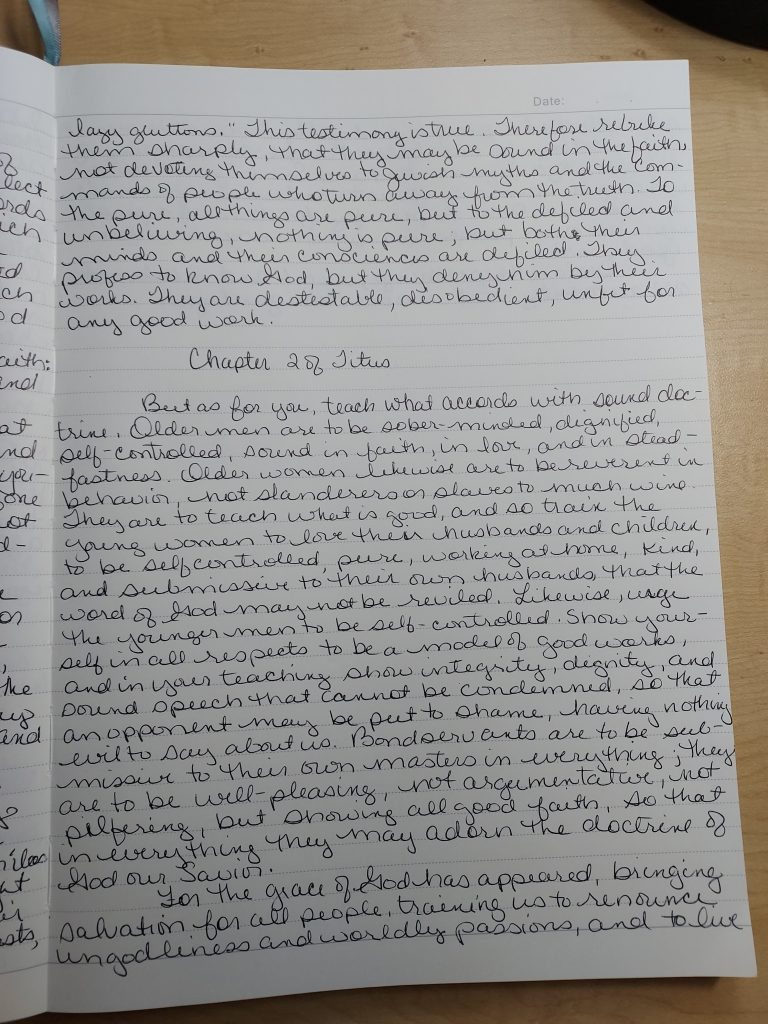 Date:
of
lect
ords
ch
ed
ch
od
aith:
and
at
nd
you-
one
not
d-
e
on
the
and
at
sts,
lazy gluttons." This testimony is true. Therefore rebuke
them sharply, that they may be sound in the faith,
not devoting themselves to Jewish myths and the com-
mands of people who turn away from the truth. To
the pure, all things are pure, but to the defiled and
unbelieving, nothing is pure; but both their
minds and their consciences are defiled. They
profess to know God, but they deny him by their
works. They are destestable, disobedient, unfit for
any good work.
Chapter 2 of Titus
But as for you, teach what accords with sound doc-
trine. Older men are to be sober-minded, dignified,
self-controlled, sound in faith, in love, and in stead-
fastness. Older women likewise are to be reverent in
behavior, not slanderers or slaves to much wine.
They are to teach what is good, and so train the
young women to love their husbands and children,
to be self controlled, pure, working at home, kind,
and submissive to their own husbands, that the
word of God may not be reviled. Likewise, urge
the younger men to be self-controlled. Show your-
self in all respects to be a model of good works,
and in your teaching show integrity, dignity, and
sound speech that cannot be condemned, so that
an opponent may be put to shame, having nothing
evil to say about us. Bondservants are to be sub-
missive to their own masters in everything; they
are to be well-pleasing, not argumentative, not
pilfering, but showing all good faith, so that
in everything they may adorn the doctrine of
God our Savior.
For the grace of God has appeared, bringing
salvation for all people, training us to renounce
ungodliness and worldly passions, and to live